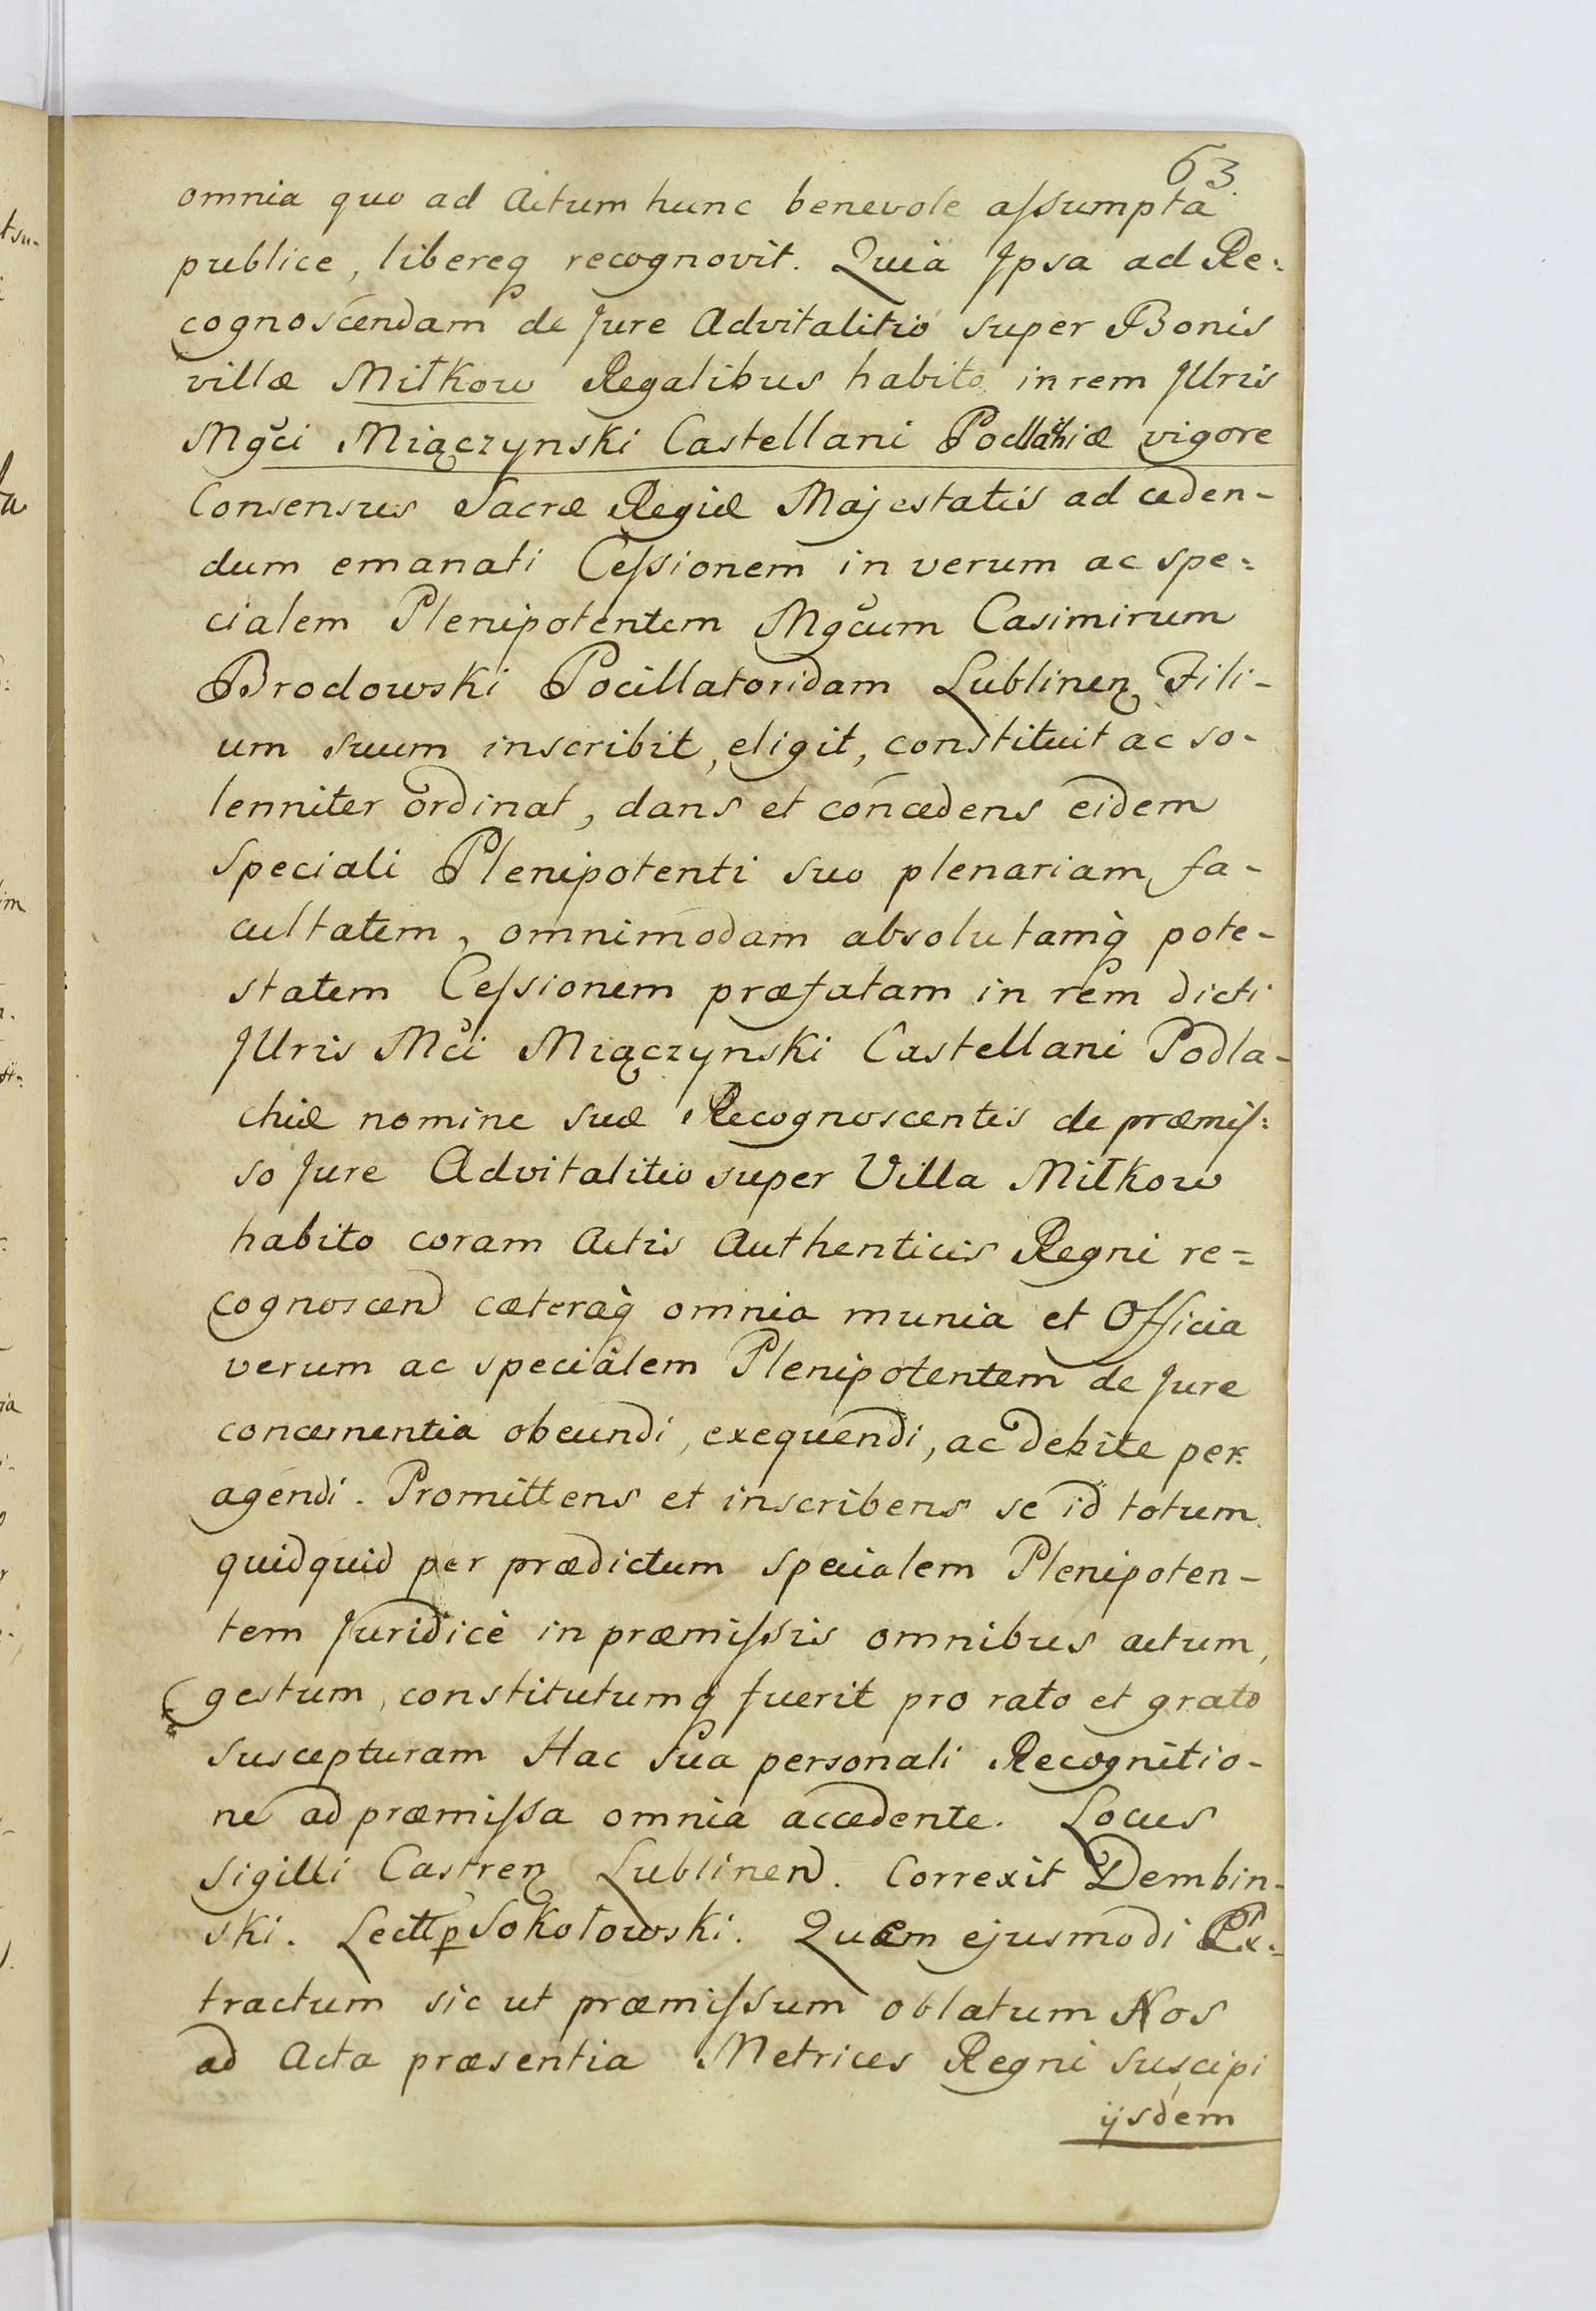 63.
omnia quo ad Actum hunc benevole aſsumpta
publice, libereq recognovit. Quia Ipsa ad Re:
cognoscendam de Jure Advitalitio super Bonis
villæ Miłkow Regalibus habito in rem Illris
Mgci Miączynski Castellani Podlachiæ vigore
Consensus Sacræ Regiæ Majestatis ad ceden-
dum emanati Ceſsionem in verum ac spe:
cialem Plenipotentem Mgcum Casimirum
Brodowski Pocillatoridam Lublinen Fili-
um suum inscribit, eligit, constituit ac so-
lenniter ordinat, dans et concedens eidem
speciali Plenipotenti suo plenariam fa-
cultatem, omnimodam absolutamq pote-
statem Ceſsionem præfatam in rem dicti
Illris Mci Miączynski Castellani Podla-
chiæ nomine suæ Recognoscentis de præmiſ:
so Jure Advitalitio super Villa Miłkow
habito coram Actis Authenticis Regni re=
cognoscend cæteraq omnia munia et Officia
verum ac specialem Plenipotentem de Jure
concernentia obeundi, exequendi, ac debite per:
agendi. Promittens et inscribens se id totum
quidquid per prædictum specialem Plenipoten-
tem Juridicè in præmiſsis omnibus actum,
gestum, constitutumq fuerit pro rato et grato
suscepturam Hac sua personali Recognitio-
ne ad præmiſsa omnia accedente. Locus
Sigilli Castren Lublinen. Correxit Dembin-
ski. Lect p Sokołowski. Quem ejusmodi Ex:
tractum sic ut præmiſsum oblatum Nos
ad Acta præsentia Metrices Regni suscipi
ijsdem